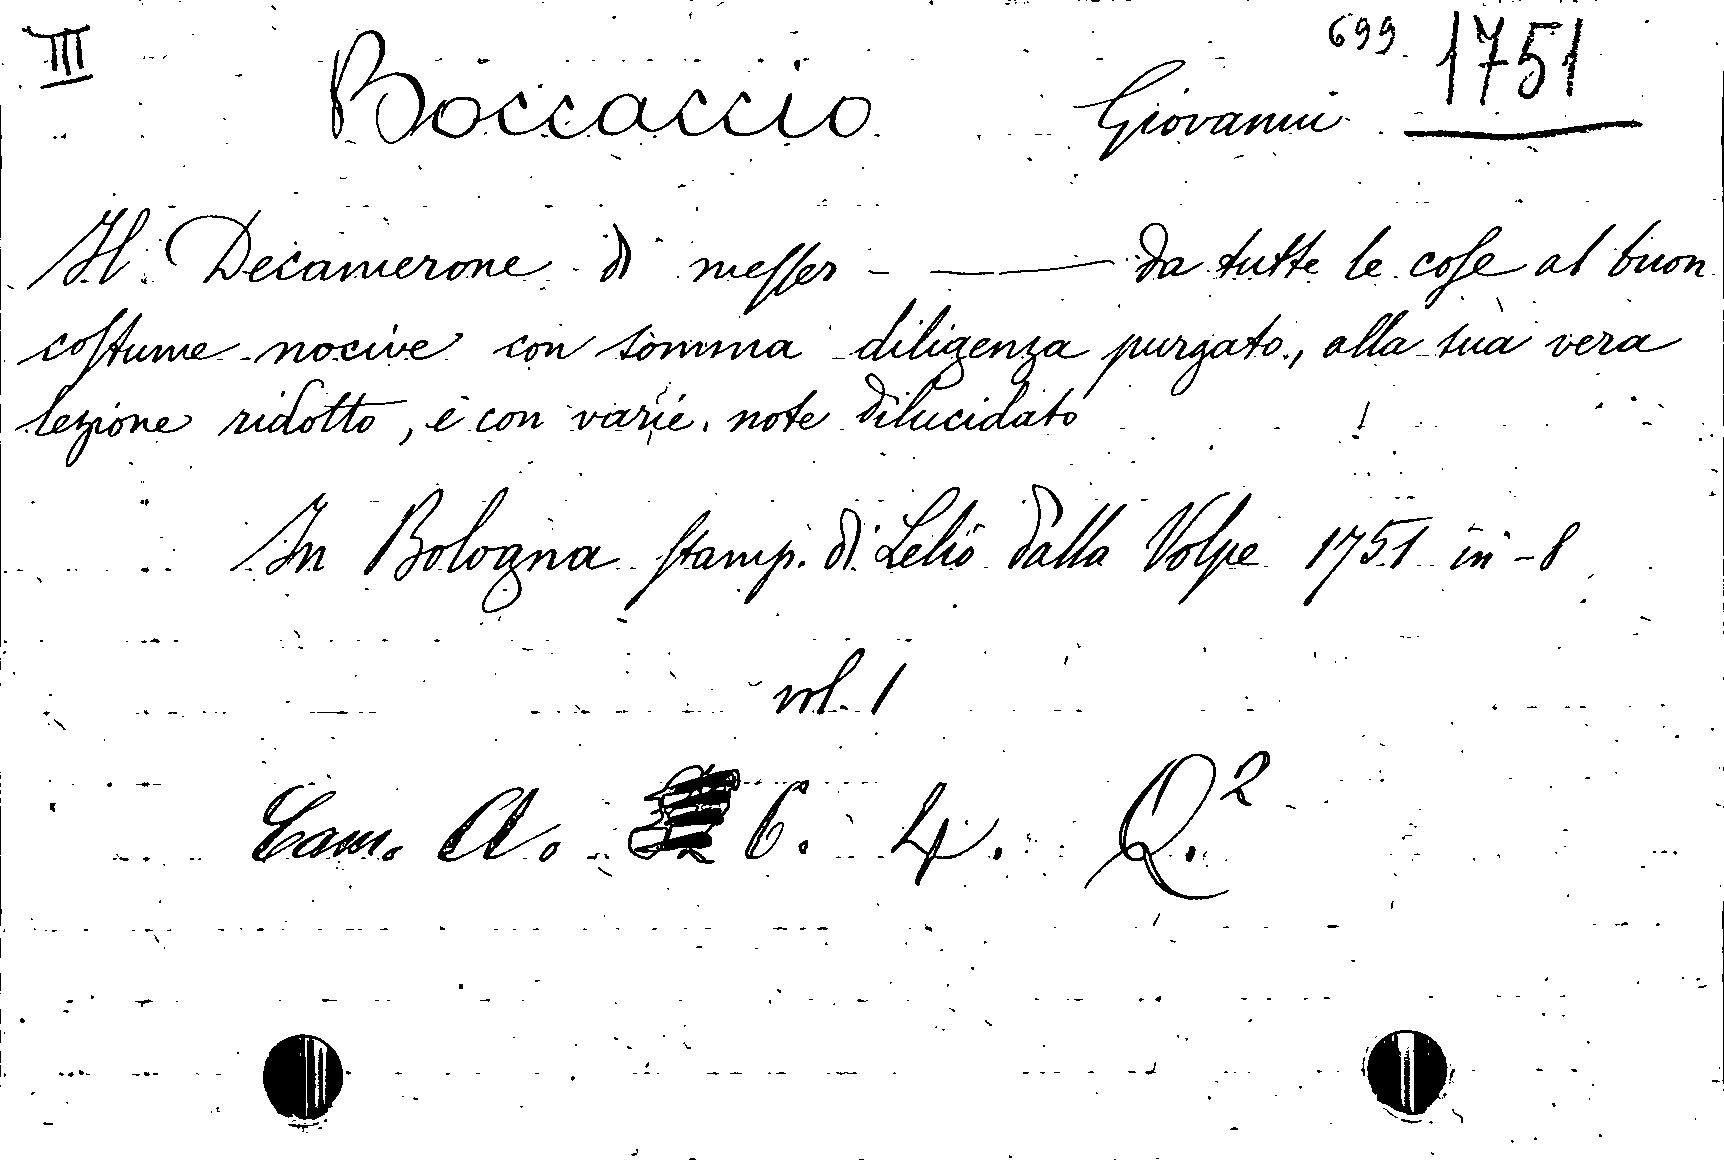 III
699 1751
Boccaccio Giovanni
Il Decamerone di messer - —— da tutte le cose al buon
costume nocive con somma diligenza purgato, alla sua vera
lezione ridotto, e con varie note dilucidato
In Bologna stamp. di Lelio dalla Volpe 1751 in-8
vol. 1
Cam. A. 6. 4. Q.2